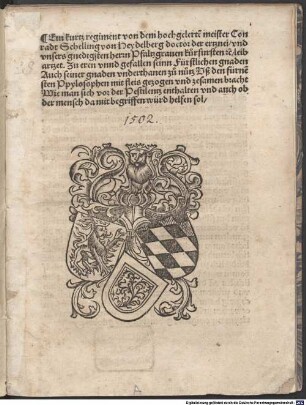 ¶Ein kurtz regiment von dem hochgelertē meister Con
radt Schelling von Heydelberg doctor der ertznei/ vnd
vnsers gnedigsten herrn Pfaltzgrauen kürfürsten ꝛc̄. leib
artzet. Zu eren vnnd gefallen seinn Fürstlichen gnaden
Auch seiner gnaden vnderthanen zu nütz Vß den fürnē
sten Ppylosophen mit fleis gezogen vnd zesamen bracht
Wie man sich vor der Pestilentz enthalten vnd auch ob
der mensch da mit begriffen würd helfen sol/
1502.
A